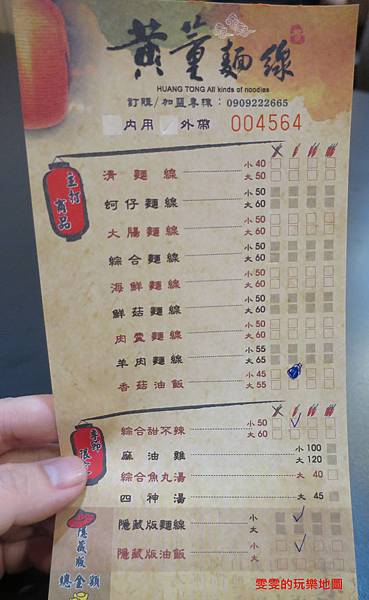 黃董麵線
HUANG TONG All kinds of noodles
訂購/加盟專線：0909222665
內用 外帶 004564
主打商品
清麵線 小 40 大 50
蚵仔麵線 小 50 大 60
大腸麵線 小 50 大 60
綜合麵線 小 50 大 60
海鮮麵線 小 50 大 60
鮮菇麵線 小 50 大 60
肉羹麵線 小 50 大 60
羊肉麵線 小 55 大 65
香菇油飯 小 45 大 55
綜合甜不辣 小 50 大 60
麻油雞 小 100 大 120
綜合魚丸湯 大 40
四神湯 大 45
隱藏版
隱藏版麵線 小 大
隱藏版油飯 小 大
總金額
雯雯的玩樂地圖